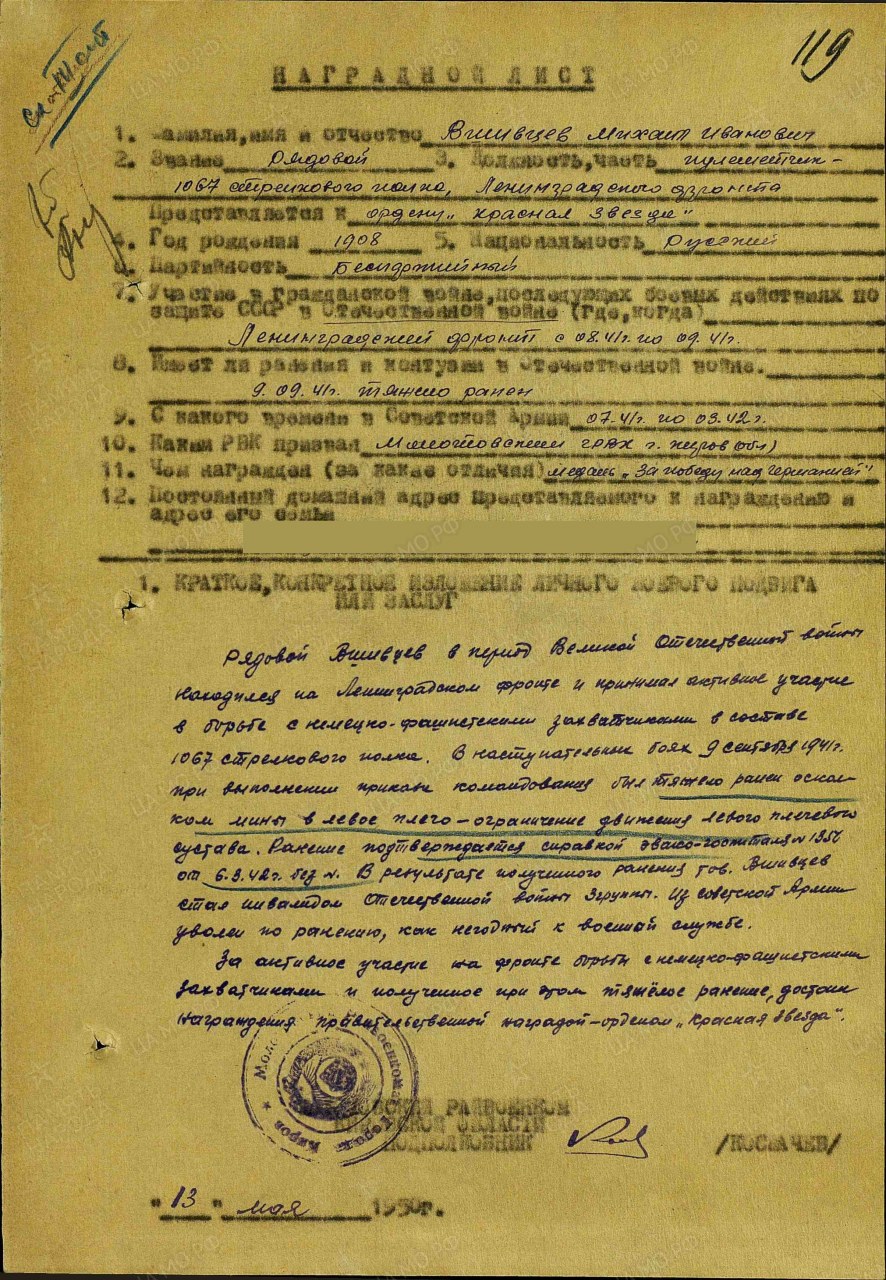 119
НАГРАДНОЙ ЛИСТ
1. Фамилия, имя и отчество Вшивцев Михаил Иванович
2. Звание Рядовой 3. Должность, часть пулеметчик-
1067 стрелкового полка, Ленинградского фронта
Представляется к ордену "Красная Звезда"
4. Год рождения 1908 5. Национальность Русский
6. Партийность Беспартийный
7. Участие в Гражданской войне, последующих боевых действиях по
защите СССР в Отечественной войне (где, когда)
Ленинградский фронт с 08.41г. по 09.41г.
8. Имеет ли ранения и контузии в Отечественной войне.
9.09.41г. тяжело ранен
9. С какого времени в Советской Армии 07.41г. по 03.42г.
10. Каким РВК призван г. Киров
11. Чем награжден (за какие отличия) медаль "За победу над Германией"
12. Постоянный домашний адрес представляемого к награждению и
адрес его семьи
1. КРАТКОЕ, КОНКРЕТНОЕ ИЗЛОЖЕНИЕ ЛИЧНОГО БОЕВОГО ПОДВИГА
ИЛИ ЗАСЛУГ
Рядовой Вшивцев в период Великой Отечественной войны
находился на Ленинградском фронте и принимал активное участие
в борьбе с немецко-фашистскими захватчиками в составе
1067 стрелкового полка. В наступательных боях 9 сентября 1941г.
при выполнении приказа командования был тяжело ранен оскол-
ком мины в левое плечо-ограничение движения левого плечевого
сустава. Ранение подтверждается справкой эвако-госпиталя № 1356
от 6.3.42г. без №. В результате полученного ранения тов. Вшивцев
стал инвалидом Отечественной войны 3 группы. Из Советской Армии
уволен по ранению, как негодный к военной службе.
За активное участие на фронте борьбы с немецко-фашистскими
захватчиками и полученное при этом тяжёлое ранение, достоин
награждения правительственной наградой-орденом "Красная Звезда".
РАЙВОЕНКОМ
КИРОВСКОЙ ОБЛАСТИ
ПОДПОЛКОВНИК /КОСМАЧЕВ/
"13" мая 1950г.